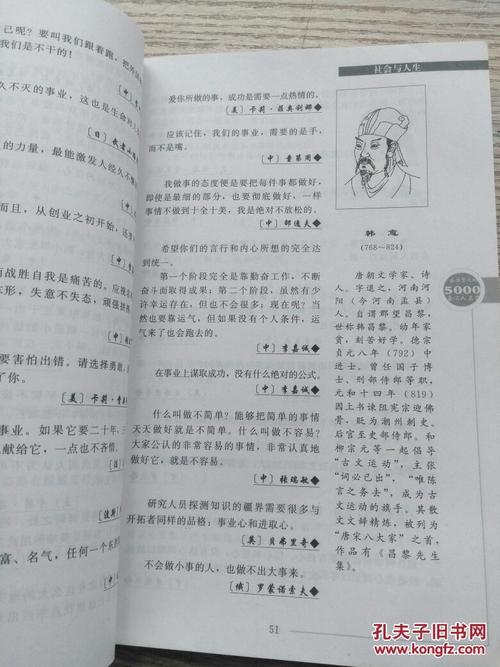 己呢？要叫我们跟着跑，把
我们是不干的！
久不灭的事业，这也是生命
的力量，最能激发人经久不
而且，从创业之初开始，
而战胜自我是痛苦的。应视
东形，失意不失态，顽强拼
要害怕出错。请选择勇敢，
了你。
事业。如果它要二十年，三
献给它，一点也不吝惜。
富、名气，任何一个东
社会与人生
爱你所做的事，成功是需要一点热情的。
〔美〕卡莉·菲奥利娜◆
应该记住，我们的事业，需要的是手，
而不是嘴。
〔中〕童第周◆
我做事的态度便是要把每件事都做好，
即使是最细的部分，也要彻底做好，一样
事情不做到十全十美，我是绝对不放松的。
〔中〕邵逸夫◆
希望你们的言行和内心所想的完全达
到统一。
第一个阶段完全是靠勤奋工作，不断
奋斗而取得成果；第二个阶段，虽然有少
许幸运存在，但也不会很多；现在呢？当
然也要靠运气，但如果没有个人条件，运
气来了也会跑去的。
〔中〕李嘉诚◆
在事业上谋取成功，没有什么绝对的公式。
〔中〕李嘉诚◆
什么叫做不简单？能够把简单的事情
天天做好就是不简单。什么叫做不容易？
大家公认的非常容易的事情，非常认真地
做好它，就是不容易。
〔中〕张瑞敏◆
研究人员探测知识的疆界需要很多与
开拓者同样的品格：事业心和进取心。
〔英〕贝弗里奇◆
不会做小事的人，也做不出大事来。
〔俄〕罗蒙诺索夫◆
韩愈
(768～824)
唐朝文学家、诗
人。字退之，河南河
阳（今河南孟县）
人。自谓郡望昌黎，
世称韩昌黎。幼年家
贫，刻苦好学。德宗
贞元八年（792）中
进士。曾任国子博
士、刑部侍郎等职，
元和十四年（819）
因上书谏阻宪宗迎佛
骨，贬为潮州刺史。
后官至吏部侍郎。和
柳宗元等一起倡导
“古文运动”，主张
“词必己出”，“唯陈
言之务去”，成为古文
运动的旗手。其散
文文辞精炼，被列为
“唐宋八大家”之首，
作品有《昌黎先生
集》。
5000
51
孔夫子旧书网
kongfz.com